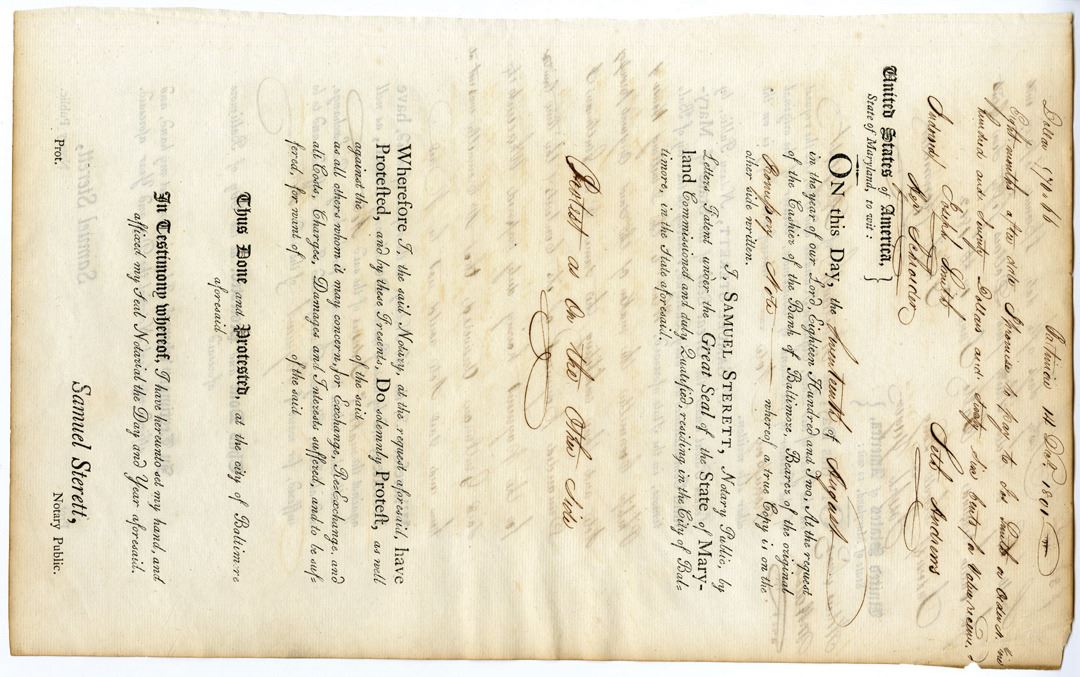 Dollars 170.66 Baltimore 1st Decr. 1801
Eight months after date I promise to pay to Jn. Smith or Order One
hundred and seventy Dollars and sixty six Cents for Value received
Seth Anders
Indorsed Smith
United States of America, }
State of Maryland, to wit : }
ON this Day, the Seventeenth of August
in the year of our Lord Eighteen Hundred and Two, At the request
of the Cashier of the Bank of Baltimore, Bearer of the original
Promissory Note whereof a true Copy is on the
other side written.
I, SAMUEL STERETT, Notary Public, by
Letters Patent under the Great Seal of the State of Mary-
land Commissioned and duly Qualified, residing in the City of Bal-
timore, in the State aforesaid.
Protest as On the Other side
Wherefore I, the said Notary, at the request aforesaid, have
Protested, and by these Presents, Do solemnly Protest, as well
against the of the said
as all others whom it may concern, for Exchange, Re-Exchange, and
all Costs, Charges, Damages and Interests suffered, and to be suf-
fered, for want of of the said
Thus Done and Protested, at the city of Baltimore
aforesaid
In Testimony whereof, I have hereunto set my hand, and
affixed my Seal Notarial the Day and Year aforesaid.
Samuel Sterett,
Prot. Notary Public.